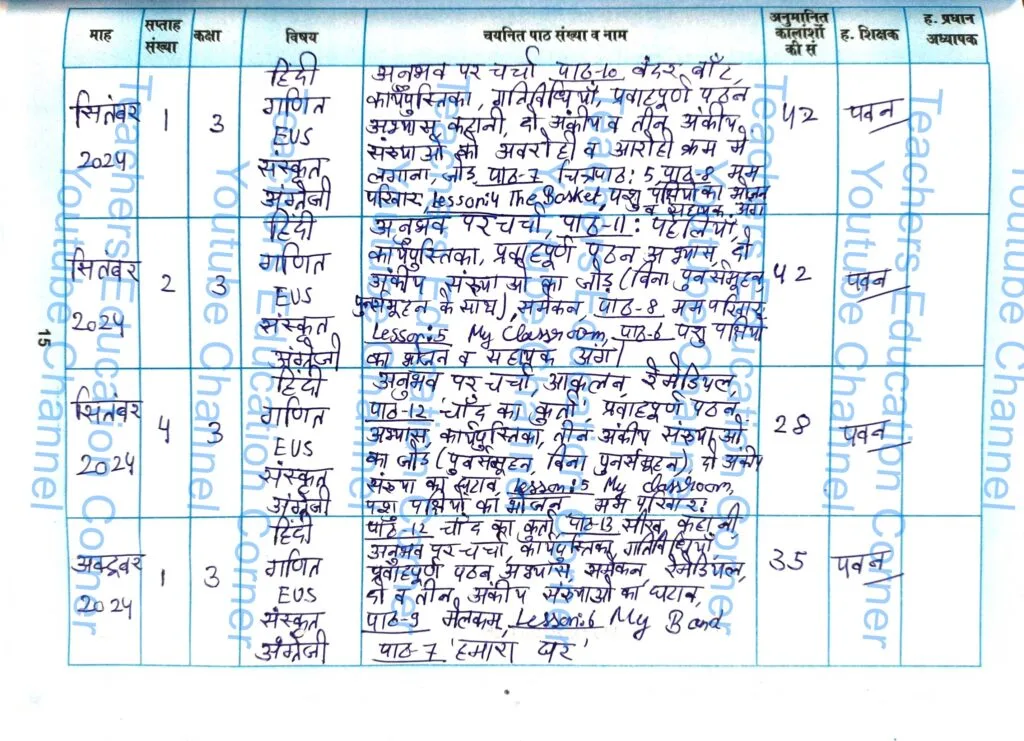 माह
सप्ताह संख्या
कक्षा
विषय
चयनित पाठ संख्या व नाम
अनुमानित कालांशों की सं
ह. शिक्षक
ह. प्रधान अध्यापक
सितंबर 2024
1
3
हिंदी
गणित
EUS
संस्कृत
अंग्रेजी
अनुभव पर चर्चा पाठ-10 बंदर बाँट,
कार्यपुस्तिका, गतिविधियाँ, प्रवाहपूर्ण पठन
अभ्यास, कहानी, दो अंकीय व तीन अंकीय
संख्याओं को अवरोही व आरोही क्रम में
लगाना, जोड़, पाठ-7 चित्रपाठ: 5, पाठ-8 मम
परिवार:, Lesson:4 The Basket, पशु पक्षियों का भोजन
व सहायक अंग
42
पवन
सितंबर 2024
2
3
हिंदी
गणित
EUS
संस्कृत
अंग्रेजी
अनुभव पर चर्चा, पाठ-11: पहेलियाँ,
कार्यपुस्तिका, प्रवाहपूर्ण पठन अभ्यास, दो
अंकीय संख्याओं का जोड़ (बिना पुनर्समूहन,
पुनर्समूहन के साथ), समेकन, पाठ-8 मम परिवार:
Lesson:5 My Classroom, पाठ-6 पशु पक्षियों
का भोजन व सहायक अंग।
42
पवन
सितंबर 2024
4
3
हिंदी
गणित
EUS
संस्कृत
अंग्रेजी
अनुभव पर चर्चा, आकलन, रेमेडियल,
पाठ-12 'चाँद का कुर्ता', प्रवाहपूर्ण पठन
अभ्यास, कार्यपुस्तिका, तीन अंकीय संख्याओं
का जोड़ (पुनर्समूहन, बिना पुनर्समूहन), दो अंकीय
संख्या का घटाव, Lesson:5 My Classroom,
पशु पक्षियों का भोजन मम परिवार:
28
पवन
अक्टूबर 2024
1
3
हिंदी
गणित
EUS
संस्कृत
अंग्रेजी
पाठ-12 चाँद का कुर्ता, पाठ-13 सीख, कहानी,
अनुभव पर चर्चा, कार्यपुस्तिका, गतिविधियाँ,
प्रवाहपूर्ण पठन अभ्यास, समेकन, रेमेडियल,
दो व तीन अंकीय संख्याओं का घटाव,
पाठ-9 मेलकम्, Lesson:6 My Band
पाठ-7 'हमारा घर'
35
पवन
15
Teachers Education Corner
Youtube Channel
Teachers Education Corner
Youtube Channel
Teachers Education Corner
Youtube Channel
Teachers Education Corner
Youtube Channel